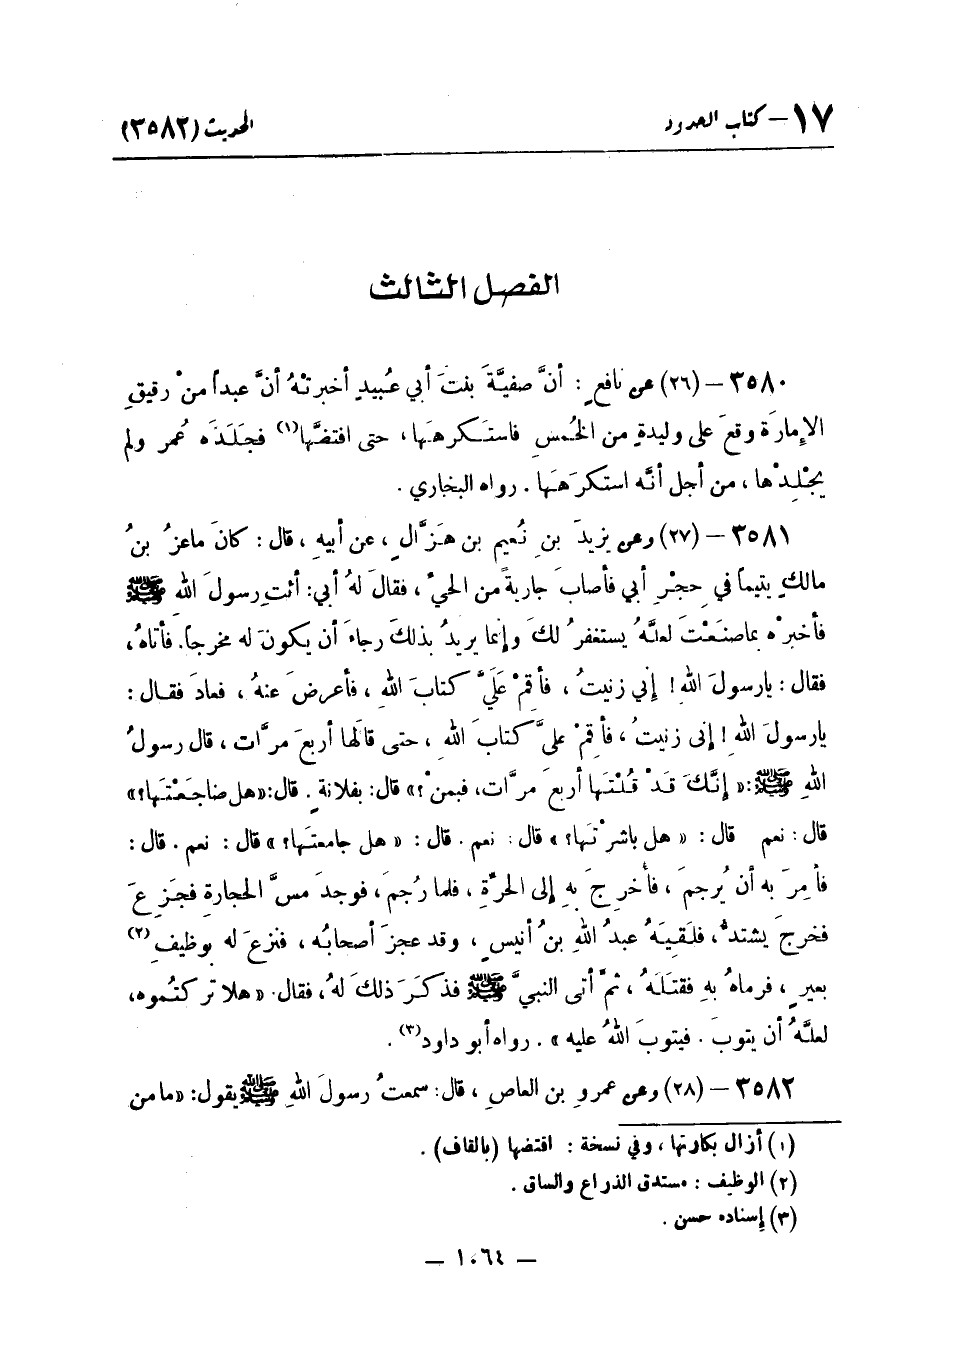 ١٧ – كتاب الحدود
الحديث (٣٥٨٢)
الفصل الثالث
٣٥٨٠ – (٢٦) عن نافعٍ : أنَّ صفيَّةَ بنتَ أبي عُبيدٍ أخبرتْهُ أنَّ عبداً منْ رقيقِ
الإِمارَة وقعَ على وليدةٍ من الخُمسِ فاستَكرهَها، حتى افتضَّها(١) فجَلَدَه عُمر ولم
يجْلِدْها، من أجل أنَّه استكرَهَها . رواه البخاري .
٣٥٨١ – (٢٧) وعن يزيدَ بنِ نُعيم بن هَزَّالٍ ، عن أبيهِ ، قال : كانَ ماعزُ بنُ
مالكٍ يتيماً في حِجْرِ أبي فأصابَ جاريةً من الحيِّ ، فقالَ لهُ أبي: أئتِ رسولَ اللهِ ﷺ
فأخبرْه بماصنَعْتَ لعلَّهُ يستغفرُ لكَ وإنما يريدُ بذلكَ رجاءَ أن يكونَ له مخرجاً. فأتاهُ،
فقال : يارسولَ اللهِ! إني زنيتُ ، فأقِمْ عَلَيَّ كتابَ اللهِ ، فأعرضَ عنهُ ، فعادَ فقـال :
يارسولَ اللهِ ! إنى زنيتُ ، فأقِمْ عليَّ كتابَ اللهِ ، حتى قالَها أربعَ مرَّات ، قال رسولُ
اللهِ ﷺ :« إنَّكَ قَدْ قُلْتَها أربعَ مرَّات، فبمن ْ؟» قال: بفلانةٍ . قال:«هل ضاجَعْتَها؟»
قال : نعم قال : « هل باشرْتَها؟ » قال : نعم . قال : « هل جامعتَها؟ » قال : نعم . قال :
فأمِرَ به أن يُرجمَ ، فأُخرِجَ بهِ إلى الحرَّةِ ، فلما رُجمَ، فوجدَ مسَّ الحجارةِ فجَزِعَ
فخرجَ يشتدُّ، فلَقيَهُ عبدُ اللهِ بنُ أنيسٍ ، وقد عجزَ أصحابُه ، فنزعَ له بوظيفِ(٢)
بعيرٍ ، فرماهُ بهِ فقتلَهُ ، ثمَّ أتى النبيَّ ﷺ فذكَرَ ذلكَ لهُ، فقال : « هلا تركتُموه،
لعلَّهُ أن يتوبَ . فيتوبَ اللهُ عليه » . رواه أبو داود(٣) .
٣٥٨٢ – (٢٨) وعن عمروِ بن العاصِ ، قال: سمعتُ رسولَ اللهِ ﷺ يقول: «ما من
(١) أزال بكارتها ، وفي نسخة : اقتضها (بالقاف) .
(٢) الوظيف : مستدق الذراع والساق .
(٣) إسناده حسن .
– ١٠٦٤ –